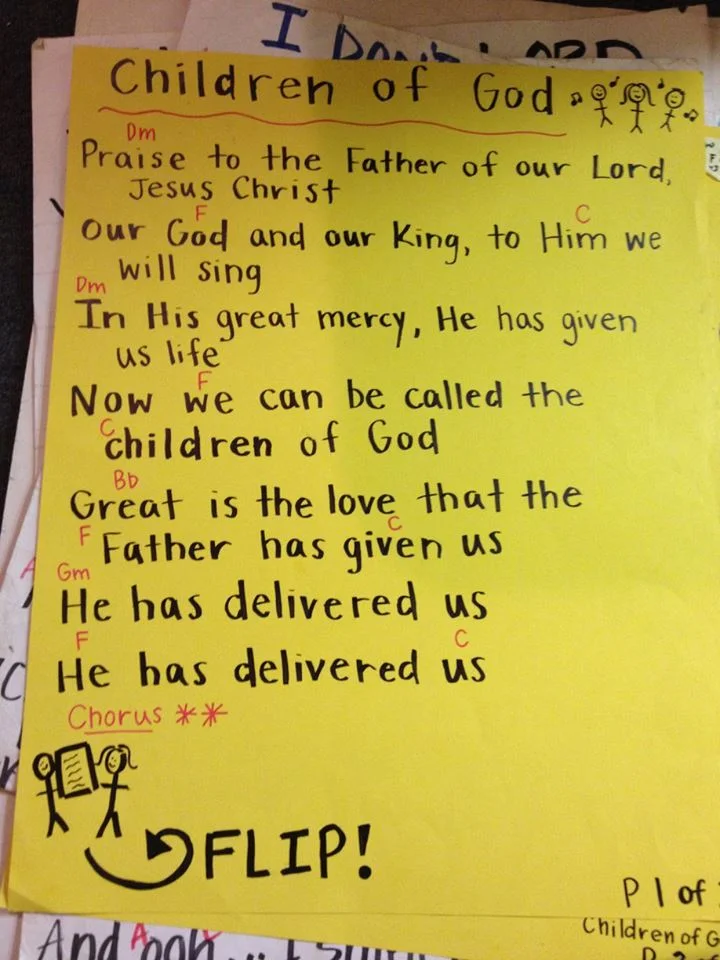 I DON'T LORD
Children of God
Dm
Praise to the Father of our Lord,
Jesus Christ
F C
Our God and our King, to Him we
will sing
Dm
In His great mercy, He has given
us life
F
Now we can be called the
C
children of God
Bb
Great is the love that the
F C
Father has given us
Gm
He has delivered us
F C
He has delivered us
Chorus **
FLIP!
P 1 of
Children of G
And A